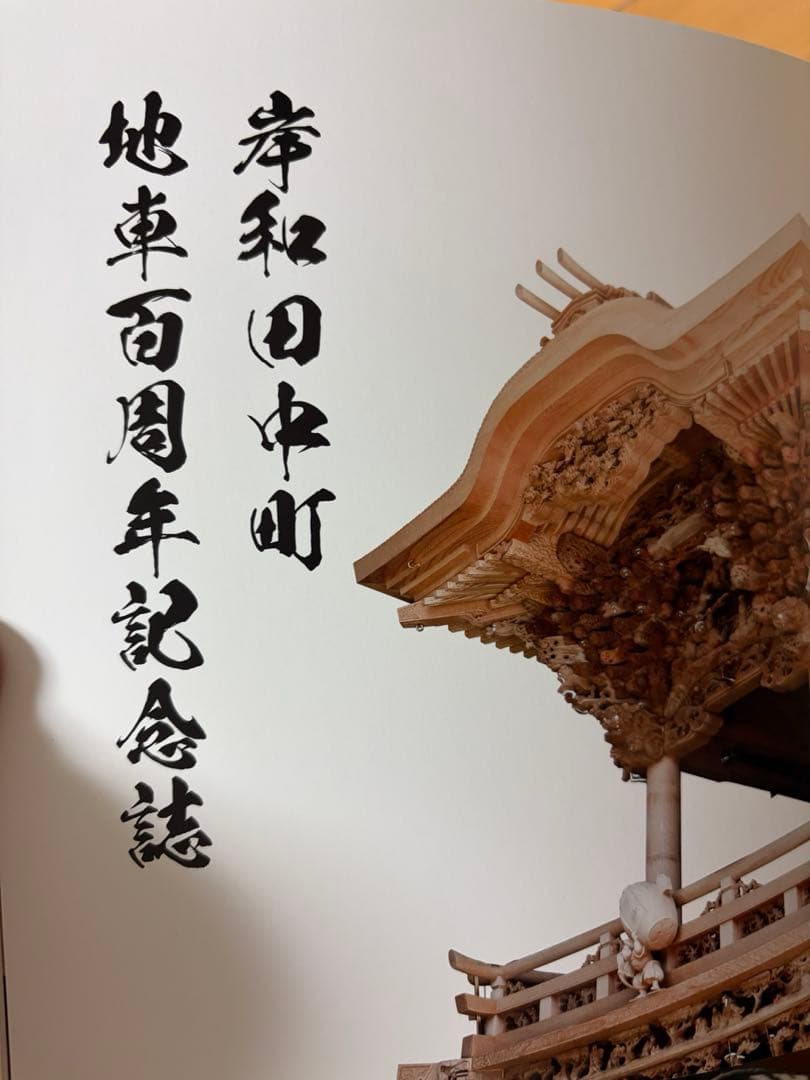 岸和田中町
地車百周年記念誌